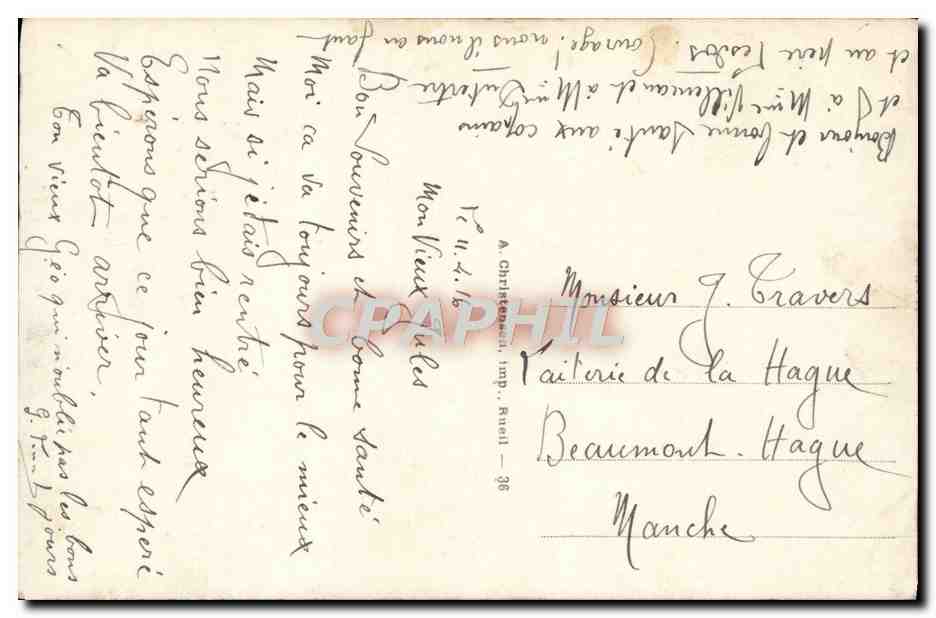 Le 11.4.16
Mon Vieux Jules
Bon Souvenirs et bonne santé
Moi ca va toujours pour le mieux
Mais si j'étais rentré
Nous serions bien heureux
Espérons que ce jour tant espéré
Va bientôt arriver
Ton vieux Géo qui n'oublie pas les bons
jours
Bonjour et bonne santé aux copains
et à Mme Villeman et à Mme Dutertre
et au père Courage! nous il nous en faut
A. Christensen, imp., Rueil — 36
Monsieur J. Travers
Laiterie de la Hague
Beaumont-Hague
Manche
CPAPHIL